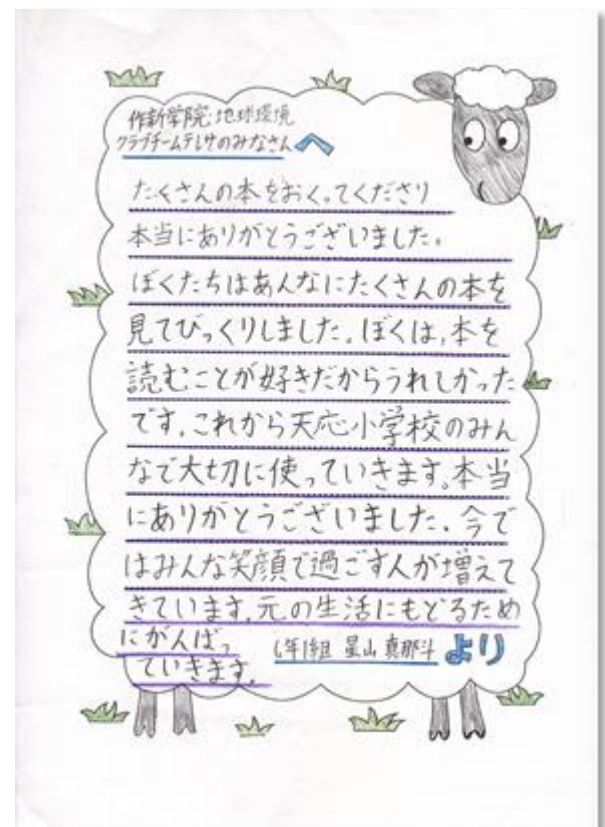 作新学院地球環境
クラブチームテレサのみなさんへ
たくさんの本をおくってくださり
本当にありがとうございました。
ぼくたちはあんなにたくさんの本を
見てびっくりしました。ぼくは、本を
読むことが好きだからうれしかった
です。これから天応小学校のみん
なで大切に使っていきます。本当
にありがとうございました。今で
はみんな笑顔で過ごす人が増えて
きています。元の生活にもどるため
にがんばっ
ていきます。
6年1組 星山 真那斗より